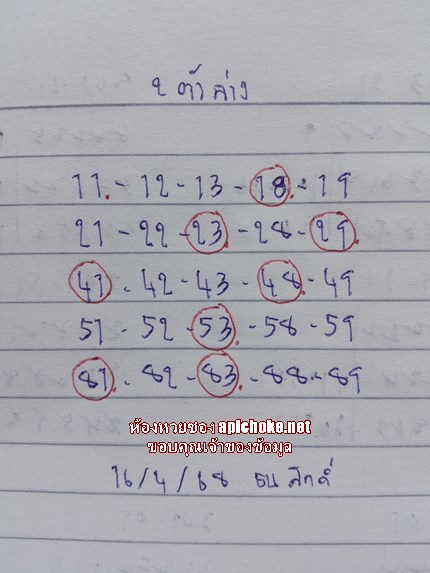 2 ตัวล่าง
11 - 12 - 13 - 18 - 19
21 - 22 - 23 - 28 - 29
41 - 42 - 43 - 48 - 49
51 - 52 - 53 - 58 - 59
81 - 82 - 83 - 88 - 89
ห้องหวยซอง apichoke.net
ขอบคุณเจ้าของข้อมูล
16/4/68 ธนศักดิ์